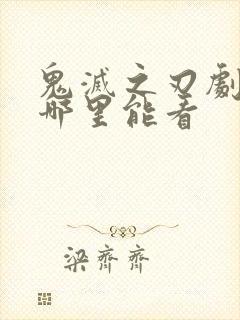 鬼滅之刃劇
哪里能看
梁齊齊